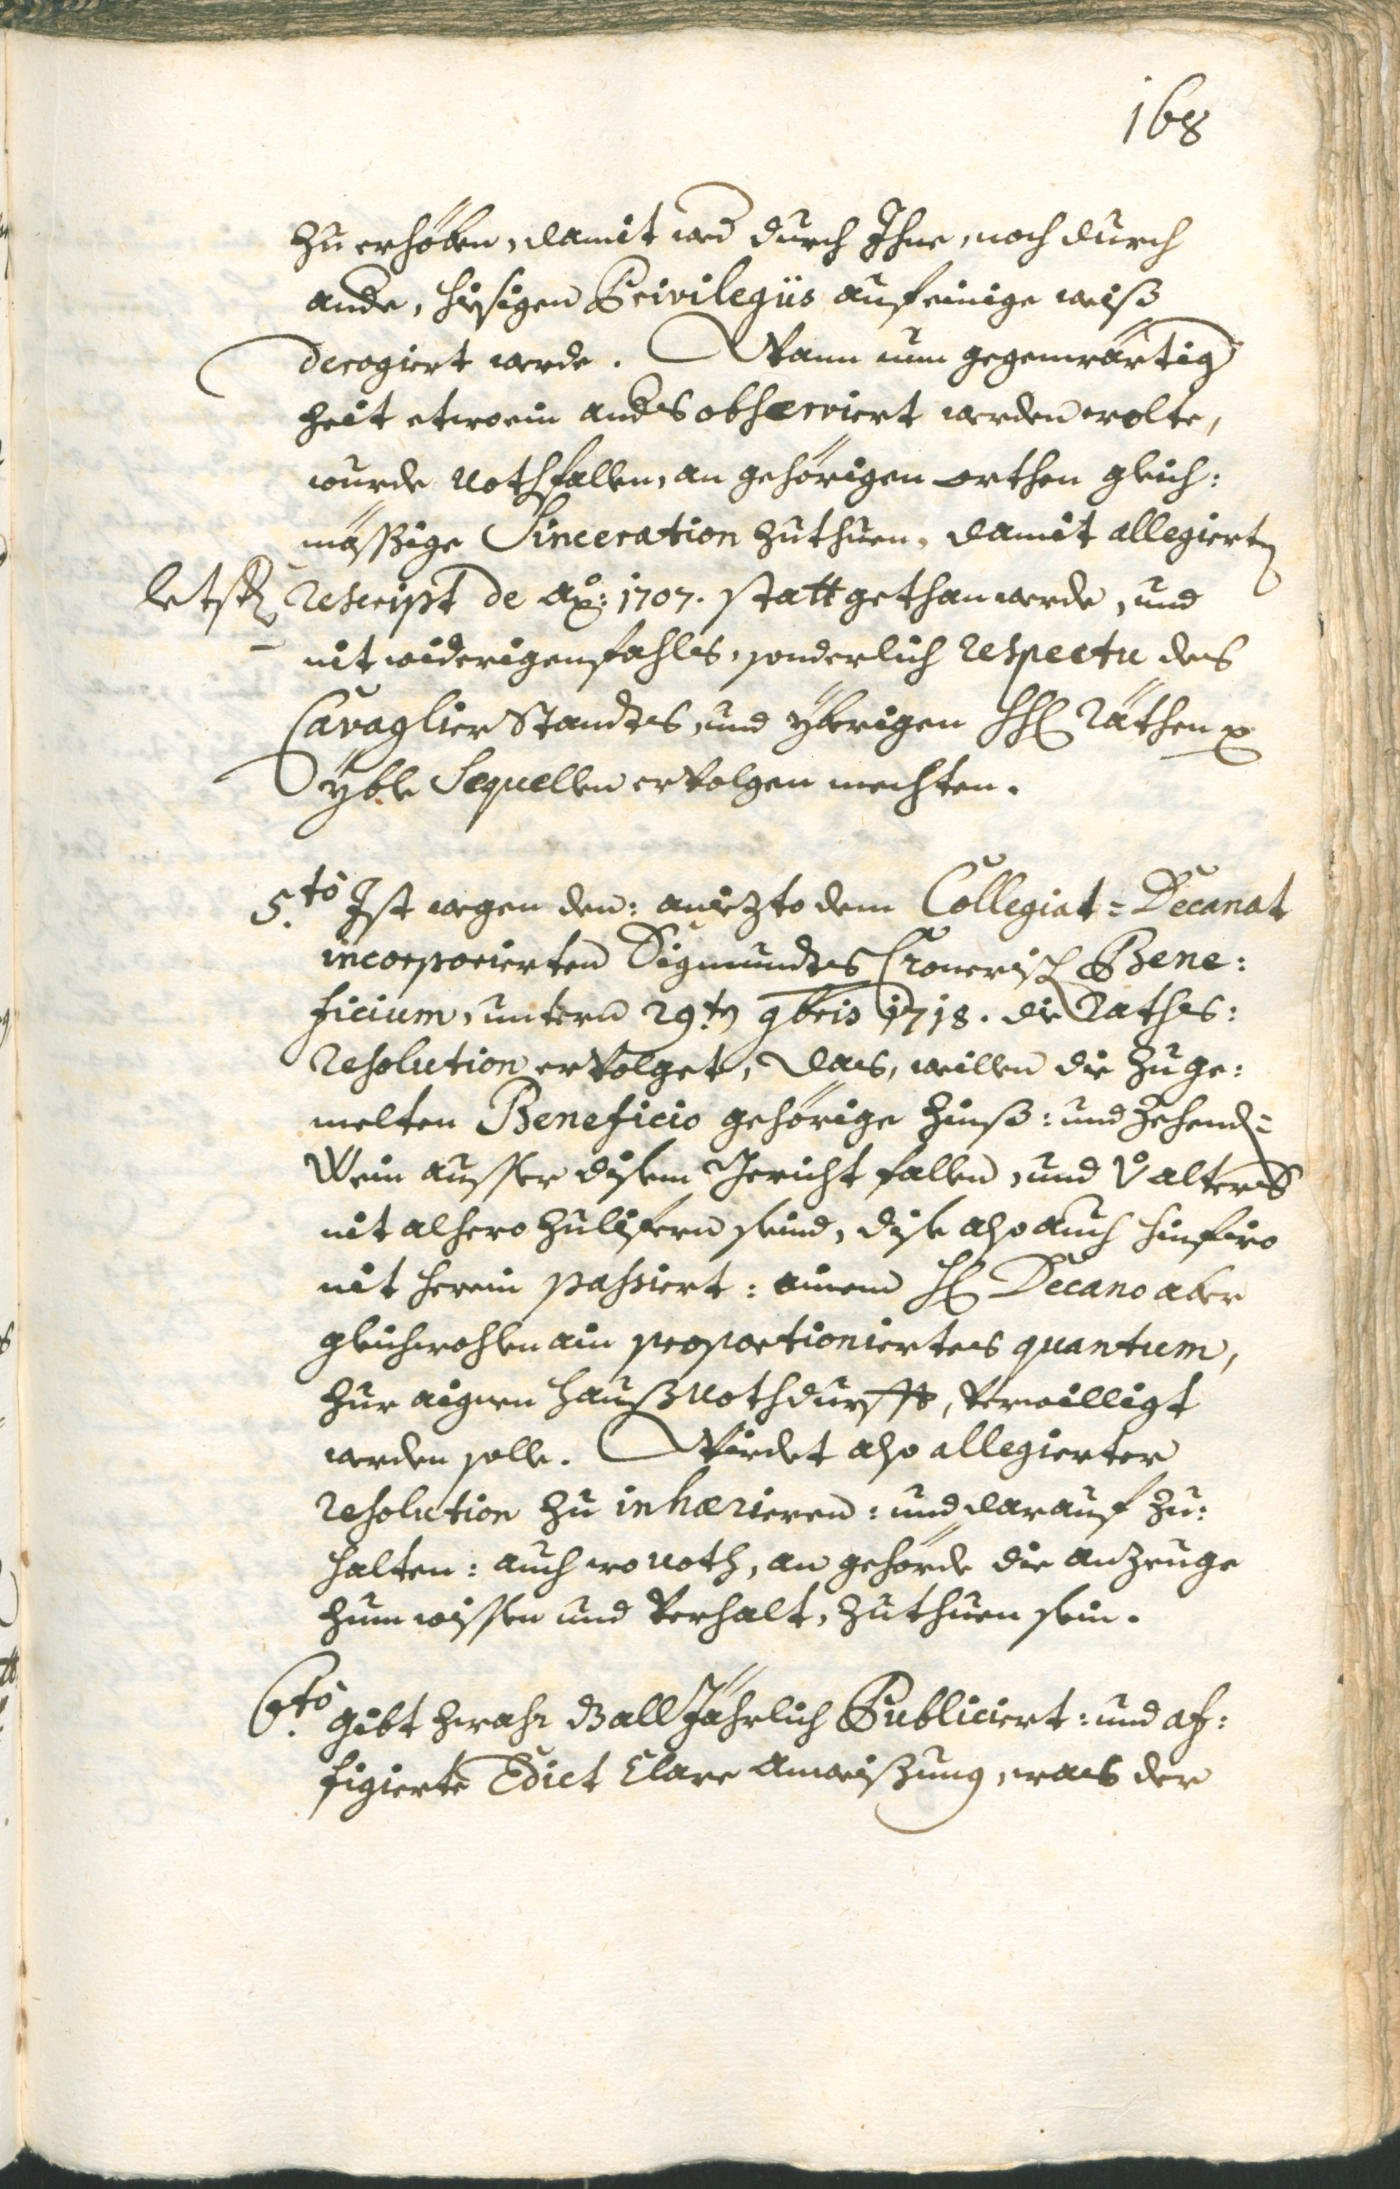 168
zu erhöben, damit wed durch Ihne, noch durch
ande, hisigen Privilegiis auf einige weiß
derogiert werde. Wann nun gegenwärtig
heit etwo ein andes observiert werden wolte,
wurde nothfallen, an gehörigen orthen gleich:
mössige Sinceration zuthuen, damit allegierten
letsten rescript de ao: 1707. statt gethan werde, und
nit widerigenfahls, sonderlich respectu des
Cavaglier Standts, und yberigen HH Räthen
yble Sequellen ervolgen mechten.
5.to Ist wegen den: aniezto dem Collegiat= Decanat
incorporierten Sigmundts Cronerisch Bene:
ficium, untern 29.ten 9bris 1718. die Raths:
resolution ervolget, das, weillen die zu ge:
melten Beneficio gehörige Zinß: und Zehend=
Wein ausser disem Gericht fallen, und v alters
nit alhero zulifern seind, dise also auch hinfiro
nit herein passiert: ainem H Decano aber
gleichwohlen ain proportioniertes quantum,
zur aignen Hauß nothdurfft, verwilligt
werden solle. Wirdet also allegierter
resolution zu inhærieren: und darauf zu:
halten: auch wo noth, an gehörde die anzeuge
zum wissen und verhalt, zuthuen sein.
6.to Gibt zwahr dz all Jährlich Publiciert: und af:
figierte Edict clare anweißung, was der